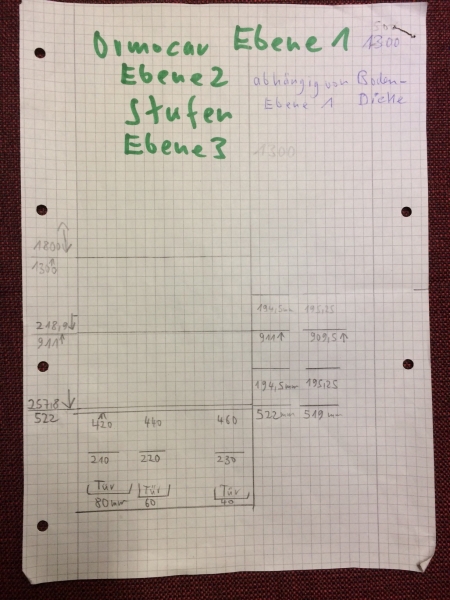 Ormocar Ebene 1 1300
Ebene 2 abhängig von Boden-
Ebene 1 Dicke
Stufen
Ebene 3 1300
1800
1300
194,5mm 195,25
218,4
911 911 909,5
194,5mm 195,25
257,8
522 522mm 519mm
420 440 460
210 220 230
Tür Tür Tür
80mm 60 40